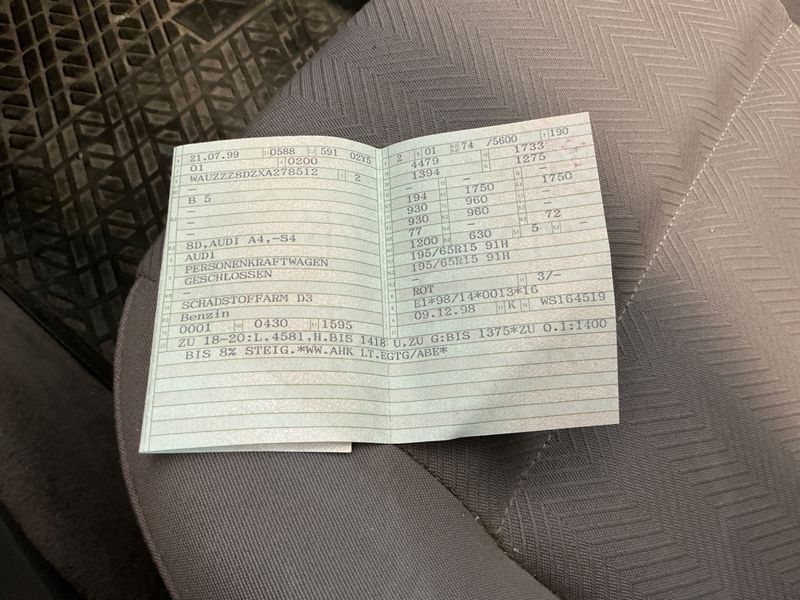 21.07.99 0588 591 02Y5
01 0200
WAUZZZ8DZXA278512 2
–
B 5
–
–
–
8D,AUDI A4,-S4
AUDI
PERSONENKRAFTWAGEN
GESCHLOSSEN
–
SCHADSTOFFARM D3
Benzin
0001 0430 1595
2 01 74 /5600 190
4479 1733
1394 1275
– –
194 1750 – 1750
930 960 –
930 960 –
77 – 72
1200 630 5 –
195/65R15 91H
195/65R15 91H
–
ROT 3/–
E1*98/14*0013*16
09.12.98 K WS164519
ZU 18-20:L.4581,H.BIS 1418 U.ZU G:BIS 1375*ZU O.1:1400
BIS 8% STEIG.*WW.AHK LT.EGTG/ABE*